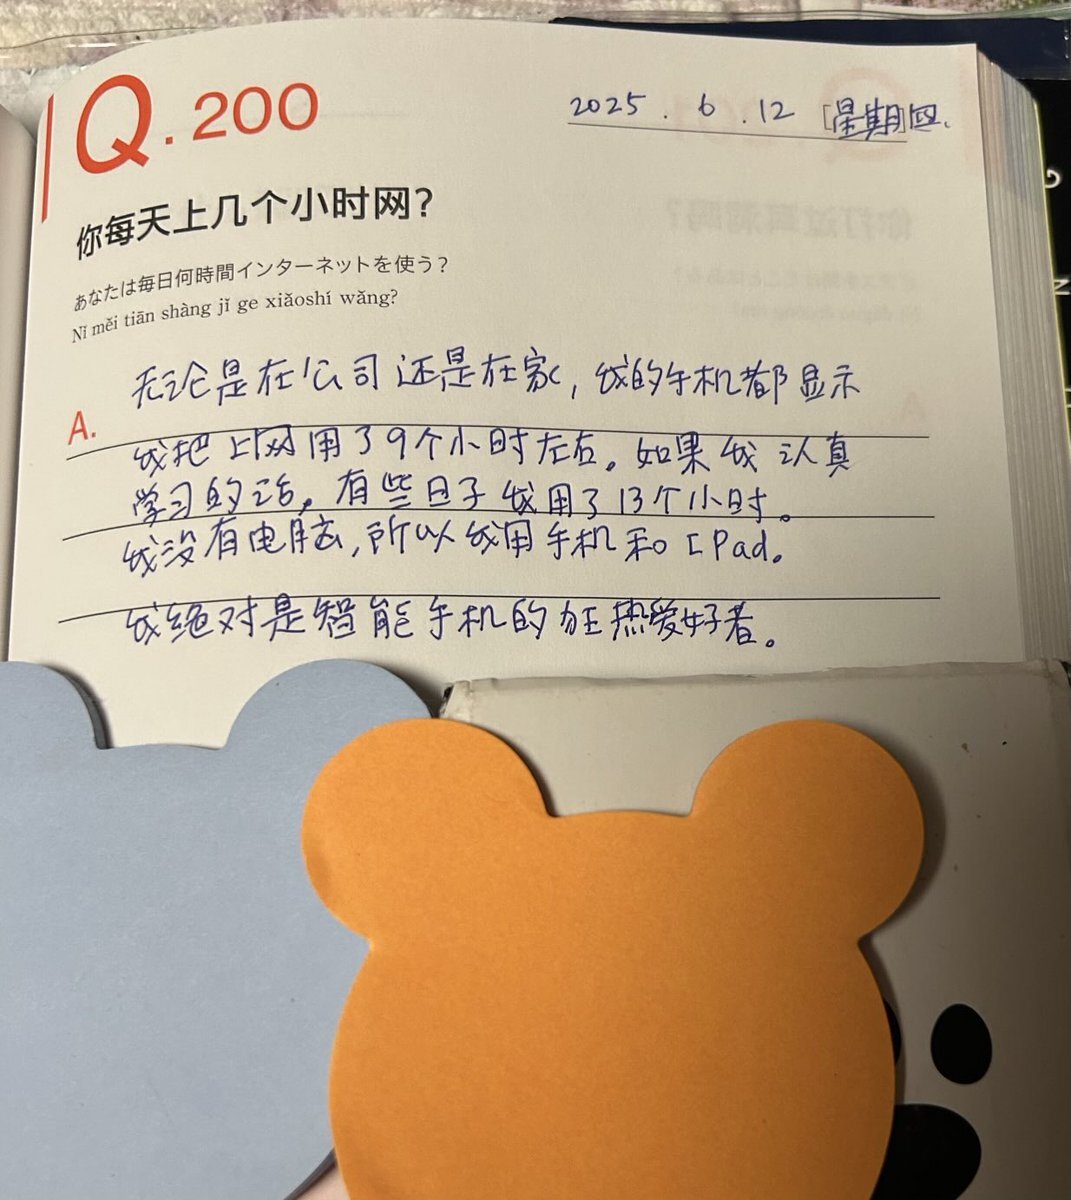 Q.200
2025.6.12 [星期]四.
你每天上几个小时网?
あなたは毎日何時間インターネットを使う?
Nǐ měi tiān shàng jǐ ge xiǎoshí wǎng?
A.
无论是在公司还是在家,我的手机都显示
我把上网用了9个小时左右。如果我认真
学习的话,有些日子我用了13个小时。
我没有电脑,所以我用手机和IPad。
我绝对是智能手机的狂热爱好者。